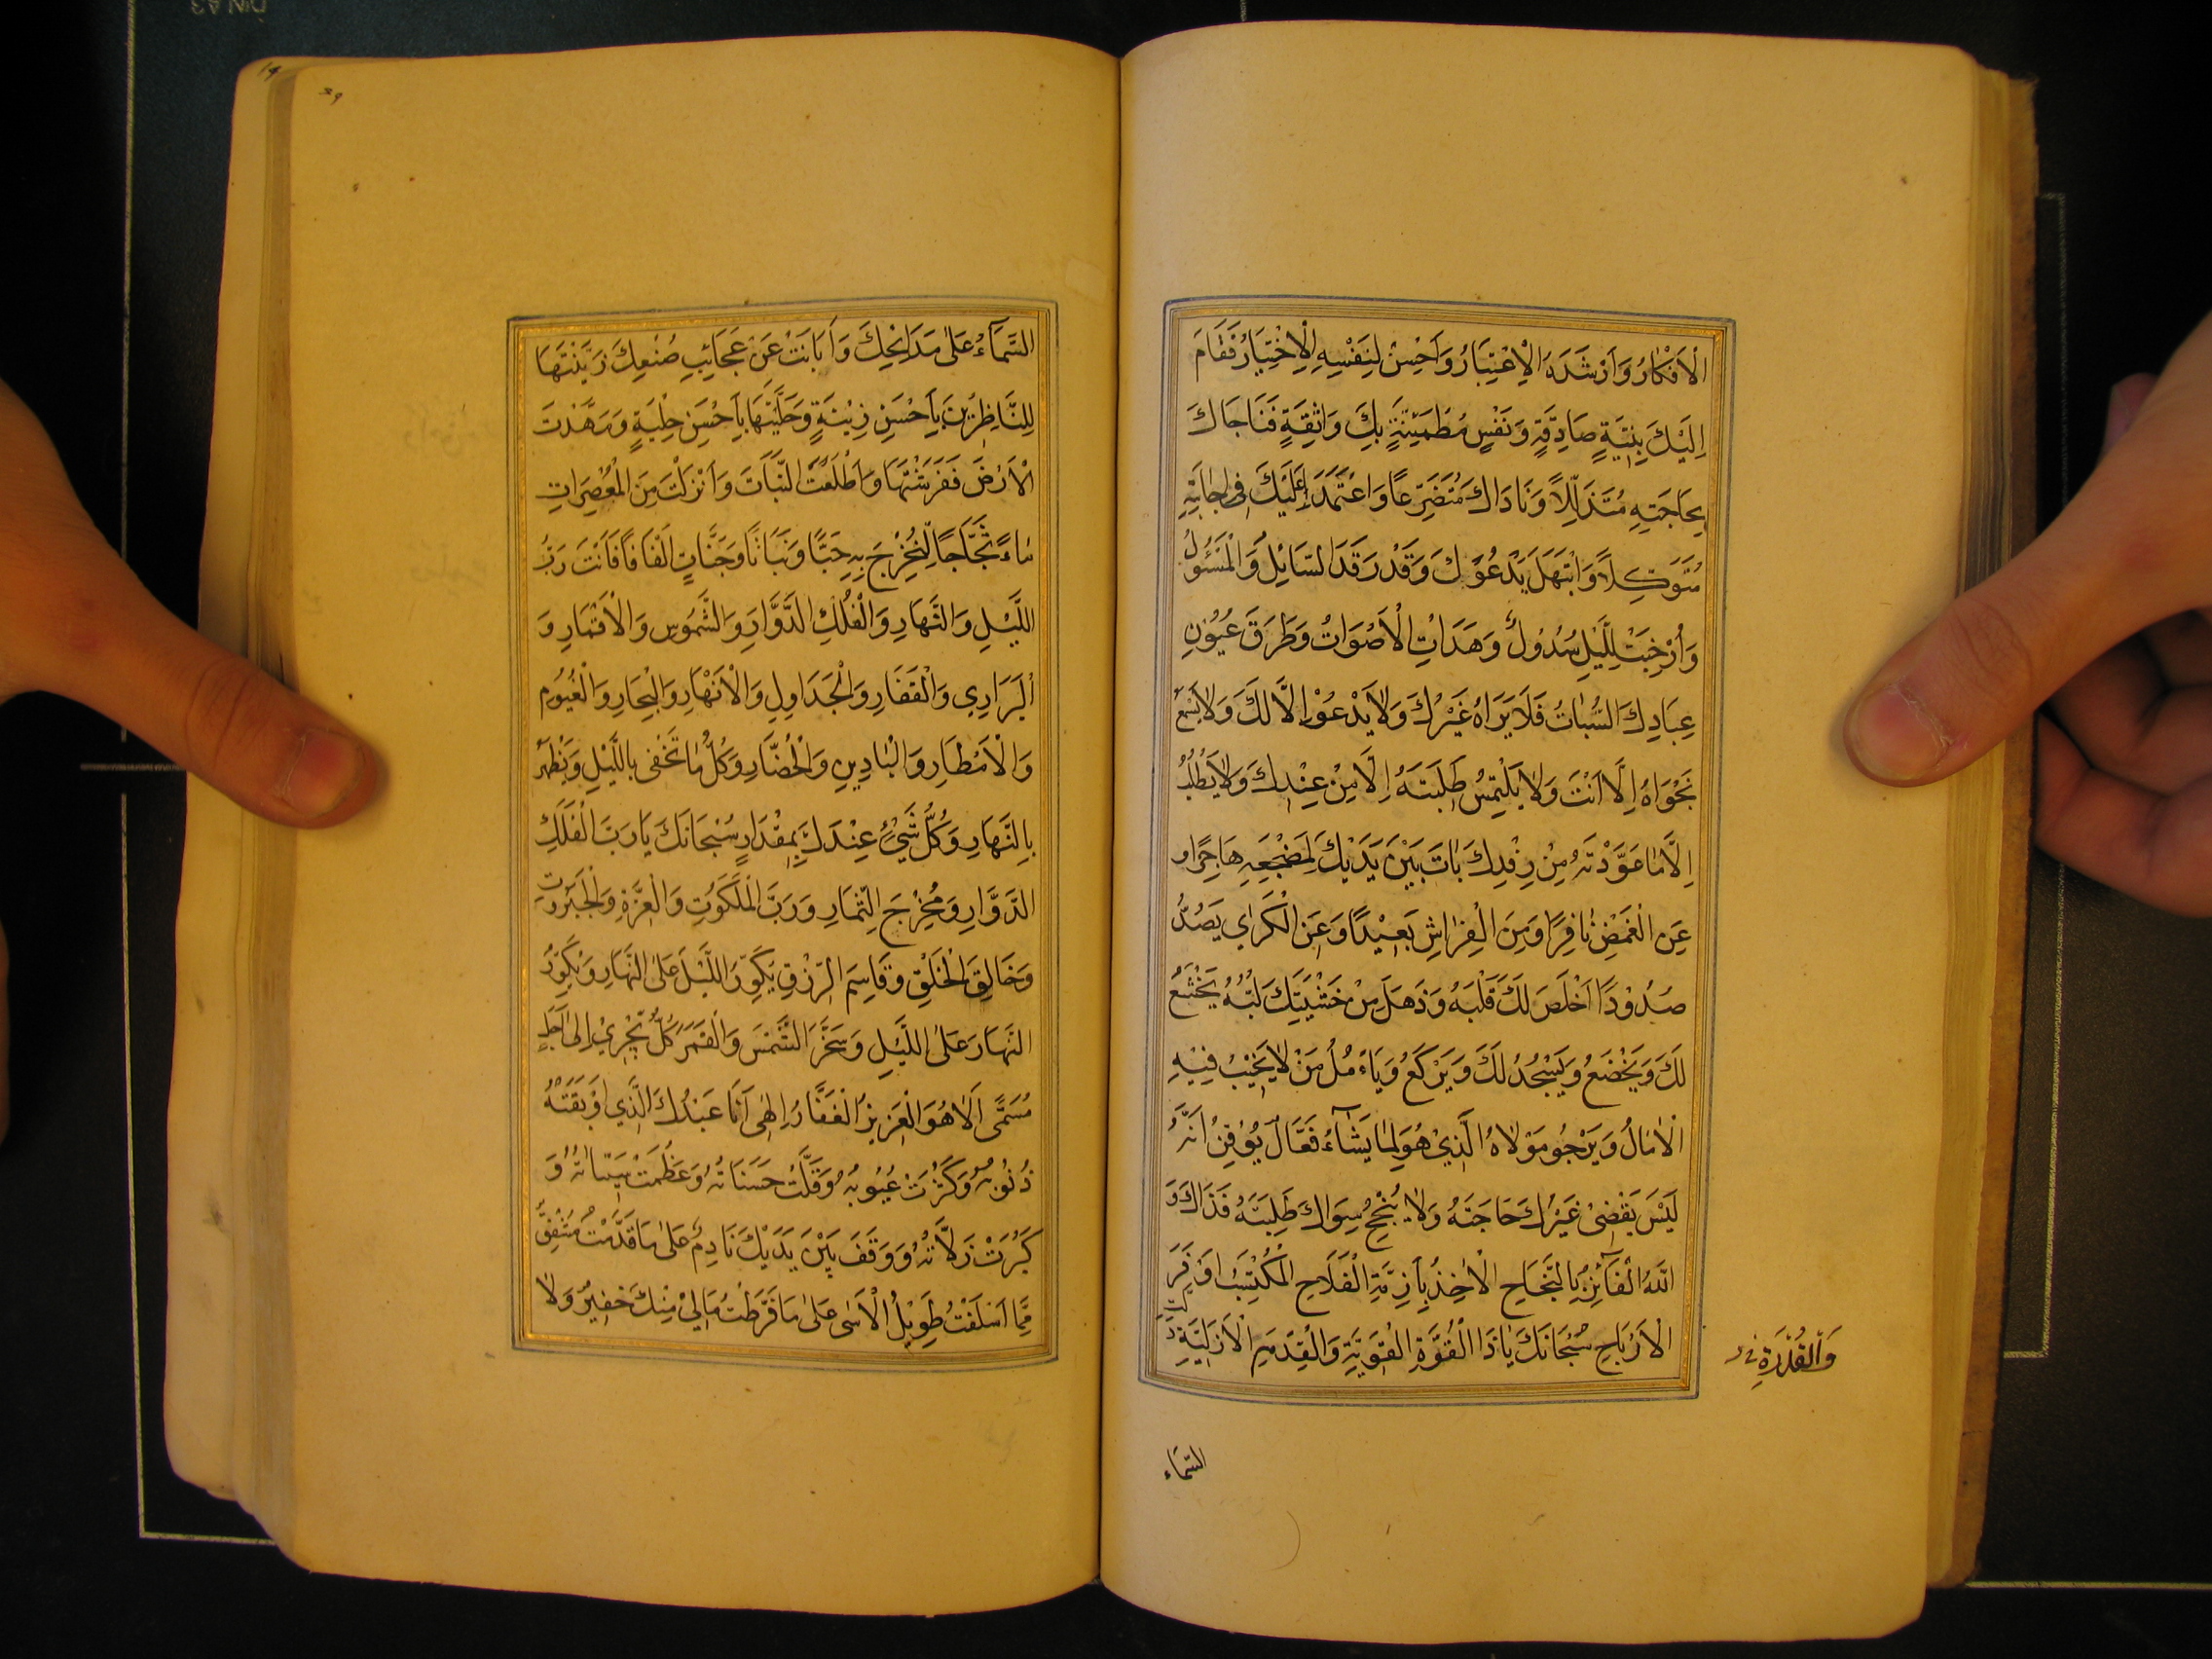 الْاَفْكَارُ وَاَرْشَدَهُ الْاِعْتِبَارُ وَاَحْسَنَ لِنَفْسِهِ الْاِخْتِيَارُ فَقَامَ
اِلَيْكَ بِنِيَّةٍ صَادِقَةٍ وَنَفْسٍ مُطْمَئِنَّةٍ بِكَ وَاثِقَةٍ فَنَاجَاكَ
بِحَاجَتِهِ مُتَذَلِّلًا وَنَادَاكَ مُتَضَرِّعًا وَاعْتَمَدَ عَلَيْكَ فِي اِجَابَتِهِ
مُتَوَكِّلًا وَابْتَهَلَ يَدْعُوكَ وَقَدْ رَقَدَ السَّائِلُ وَالْمَسْئُولُ
وَاُرْخِيَتْ لِلَّيْلِ سُدُولٌ وَهَدَاَتِ الْاَصْوَاتُ وَطَرَقَ عُيُوْنِ
عِبَادِكَ السُّبَاتُ فَلَا يَرَاهُ غَيْرُكَ وَلَا يَدْعُوْ اِلَّا لَكَ وَلَا يَسْمَعُ
نَجْوَاهُ اِلَّا اَنْتَ وَلَا يَلْتَمِسُ طَلِبَتَهُ اِلَّا مِنْ عِنْدِكَ وَلَا يَطْلُبُ
اِلَّا مَا عَوَّدْتَهُ مِنْ رِفْدِكَ بَاتَ بَيْنَ يَدَيْكَ لِمَضْجَعِهِ هَاجِرًا وَ
عَنِ الْغَمْضِ نَافِرًا وَمِنَ الْفِرَاشِ بَعِيْدًا وَعَنِ الْكَرَاي يَصُدُّ
صُدُوْدًا اَخْلَصَ لَكَ قَلْبَهُ وَذَهَلَ مِنْ خَشْيَتِكَ لُبُّهُ يَخْشَعُ
لَكَ وَيَخْضَعُ وَيَسْجُدُ لَكَ وَيَرْكَعُ وَيَاْمُلُ مَنْ لَا يَخِيْبُ فِيْهِ
الْاٰمَالُ وَيَرْجُو مَوْلَاهُ الَّذِيْ هُوَ لِمَا يَشَآءُ فَعَّالٌ يُوْقِنُ اَنَّهُ
لَيْسَ يَقْضِيْ غَيْرُكَ حَاجَتَهُ وَلَا يُنْجِحُ سِوَاكَ طَلِبَتَهُ فَذَاكَ وَ
اللهِ الْفَآئِزُ بِالنَّجَاحِ الْاٰخِذُ بِاَزِمَّةِ الْفَلَاحِ الْمُكْتَسِبُ اَوْفَرَ
الْاَرْبَاحِ سُبْحَانَكَ يَا ذَا الْقُوَّةِ الْقَوِيَّةِ وَالْقِدَمِ الْاَزَلِيَّةِ
وَالْقُدْرَةِ
السَّمَاء
السَّمَآءُ عَلٰى مَدَايِحِكَ وَاَبَانَتْ عَنْ عَجَائِبِ صُنْعِكَ زَيَّنْتَهَا
لِلنَّاظِرِيْنَ بِاَحْسَنِ زِيْنَةٍ وَحَلَّيْتَهَا بِاَحْسَنِ حِلْيَةٍ وَمَهَّدْتَ
الْاَرْضَ فَفَرَشْتَهَا وَاَطْلَعْتَ النَّبَاتَ وَاَنْزَلْتَ مِنَ الْمُعْصِرَاتِ
مَاءً ثَجَّاجًا لِنُخْرِجَ بِهِ حَبًّا وَنَبَاتًا وَجَنَّاتٍ اَلْفَافًا فَاَنْتَ رَبُّ
اللَّيْلِ وَالنَّهَارِ وَالْفُلْكِ الدَّوَّارِ وَالشُّمُوسِ وَالْاَقْمَارِ وَ
الْبَرَارِي وَالْقِفَارِ وَالْجَدَاوِلِ وَالْاَنْهَارِ وَالْبِحَارِ وَالْغُيُوْمِ
وَالْاَمْطَارِ وَالْبَادِيْنِ وَالْحُضَّارِ وَكُلُّ مَا يَخْفٰى بِاللَّيْلِ وَيَظْهَرُ
بِالنَّهَارِ وَكُلُّ شَيْءٍ عِنْدَكَ بِمِقْدَارٍ سُبْحَانَكَ يَا رَبَّ الْفَلَكِ
الدَّوَّارِ وَمُخْرِجَ الثِّمَارِ وَرَبَّ الْمَلَكُوْتِ وَالْعِزَّةِ وَالْجَبَرُوْتِ
وَخَالِقَ الْخَلْقِ وَقَاسِمَ الرِّزْقِ يُكَوِّرُ اللَّيْلَ عَلَى النَّهَارِ وَيُكَوِّرُ
النَّهَارَ عَلَى اللَّيْلِ وَسَخَّرَ الشَّمْسَ وَالْقَمَرَ كُلٌّ يَجْرِيْ اِلٰى اَجَلٍ
مُسَمًّى اَلَا هُوَ الْعَزِيْزُ الْغَفَّارُ اِلٰهِي اَنَا عَبْدُكَ الَّذِي اَوْبَقَتْهُ
ذُنُوْبُهُ وَكَثُرَتْ عُيُوْبُهُ وَقَلَّتْ حَسَنَاتُهُ وَعَظُمَتْ سَيِّئَاتُهُ وَ
كَبُرَتْ زَلَّاتُهُ وَوَقَفَ بَيْنَ يَدَيْكَ نَادِمٌ عَلٰى مَا قَدَّمْتُ مُشْفِقٌ
مِمَّا اَسْلَفْتُ طَوِيْلُ الْاَسٰى عَلٰى مَا فَرَّطْتُ مَا لِيْ مِنْكَ خَفِيْرٌ وَلَا